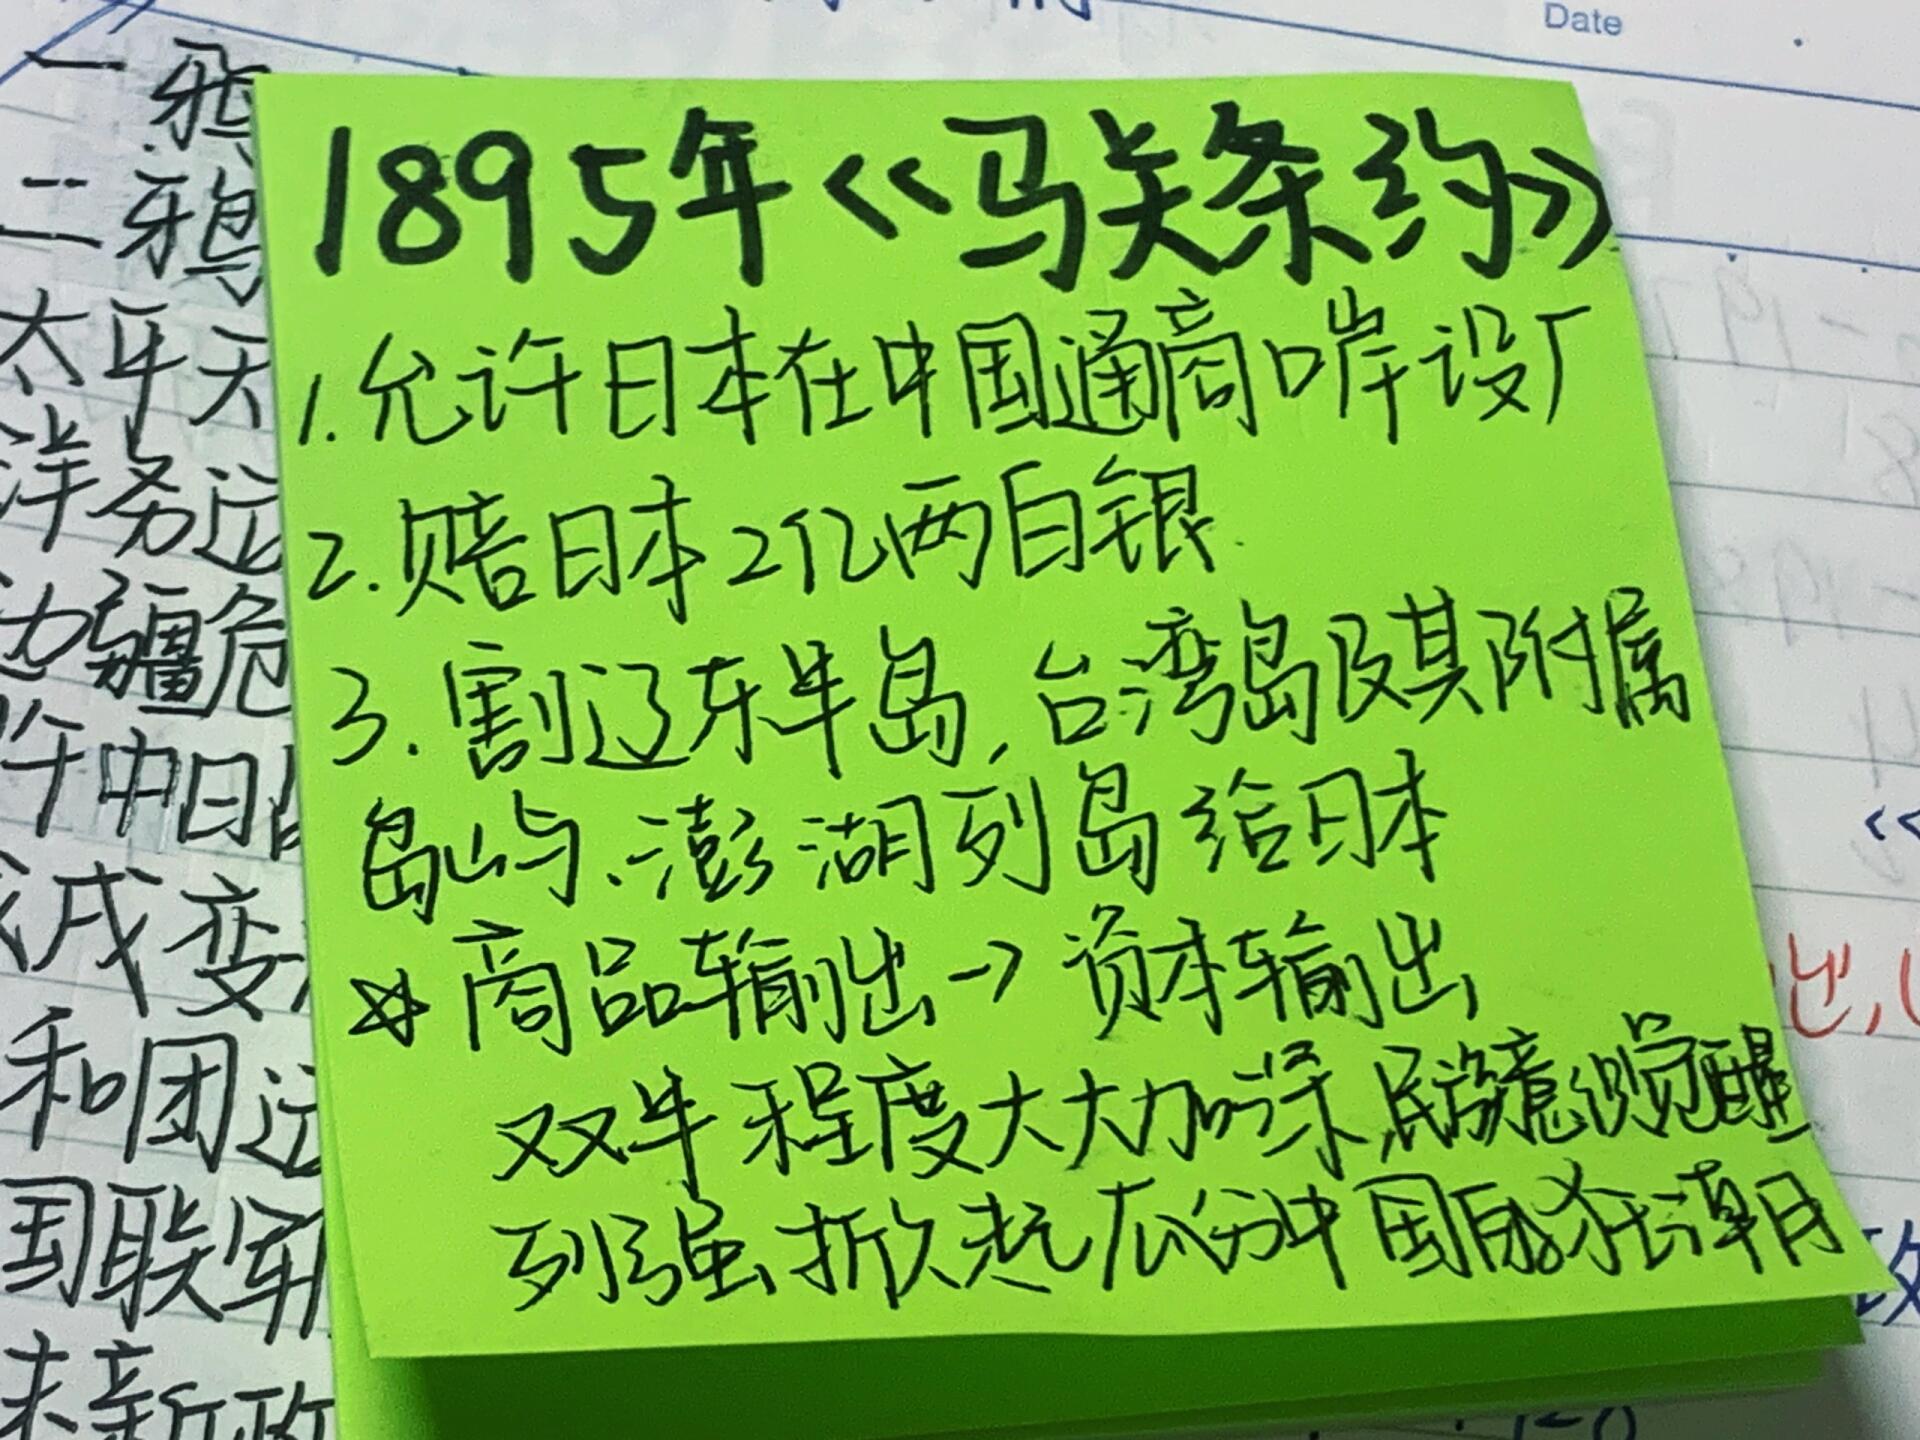 Date
一鸦
二鸦
太平天
洋务运
边疆危
午中日
戌变
和团运
国联军
末新政
1895年《马关条约》
1.允许日本在中国通商口岸设厂
2.赔日本2亿两白银.
3.割辽东半岛,台湾岛及其附属
岛屿、澎湖列岛给日本
☆商品输出→资本输出
双半程度大大加深,民族意识觉醒
列强掀起瓜分中国的狂潮